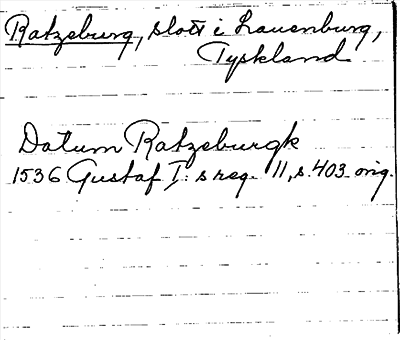 Ratzeburg, slott i Lauenburg,
Tyskland
Datum Ratzeburgk
1536 Gustaf I:s reg. 11, s. 403 orig.